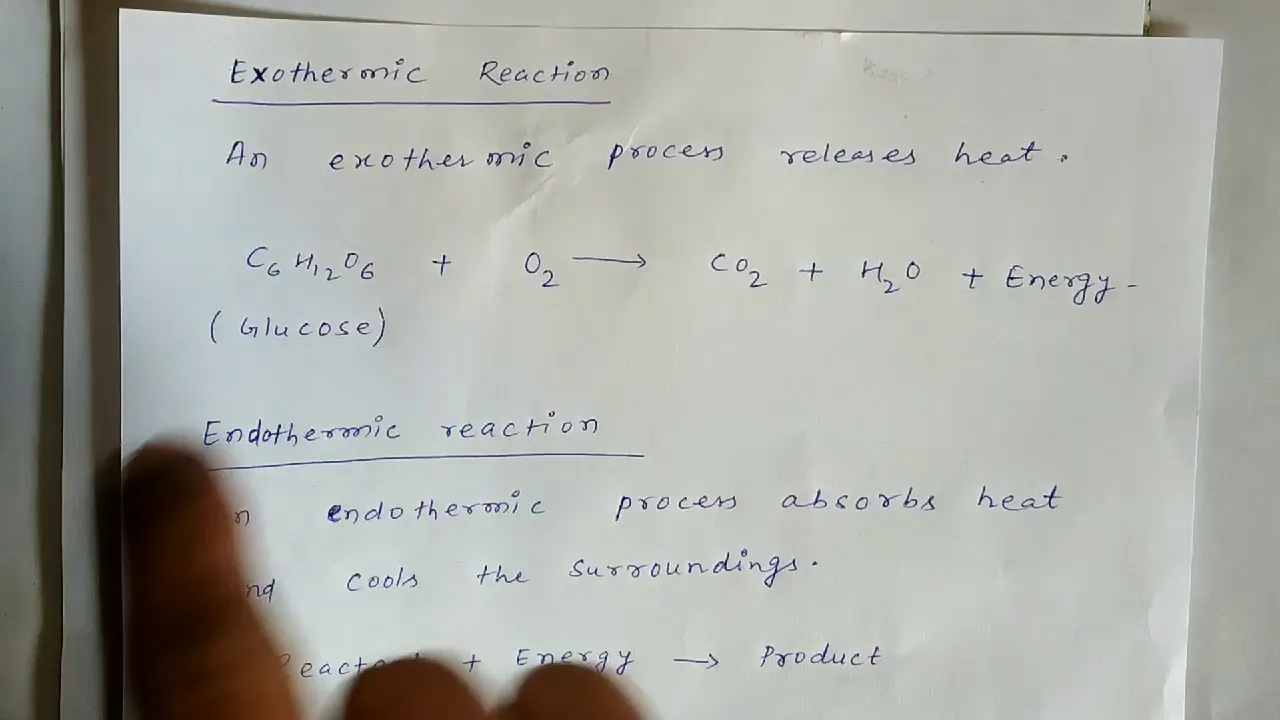 Exothermic Reaction
An exothermic process releases heat.
C6 H12 O6 + O2 → CO2 + H2O + Energy -
(Glucose)
Endothermic reaction
endothermic process absorbs heat
cools the surroundings.
+ Energy → Product